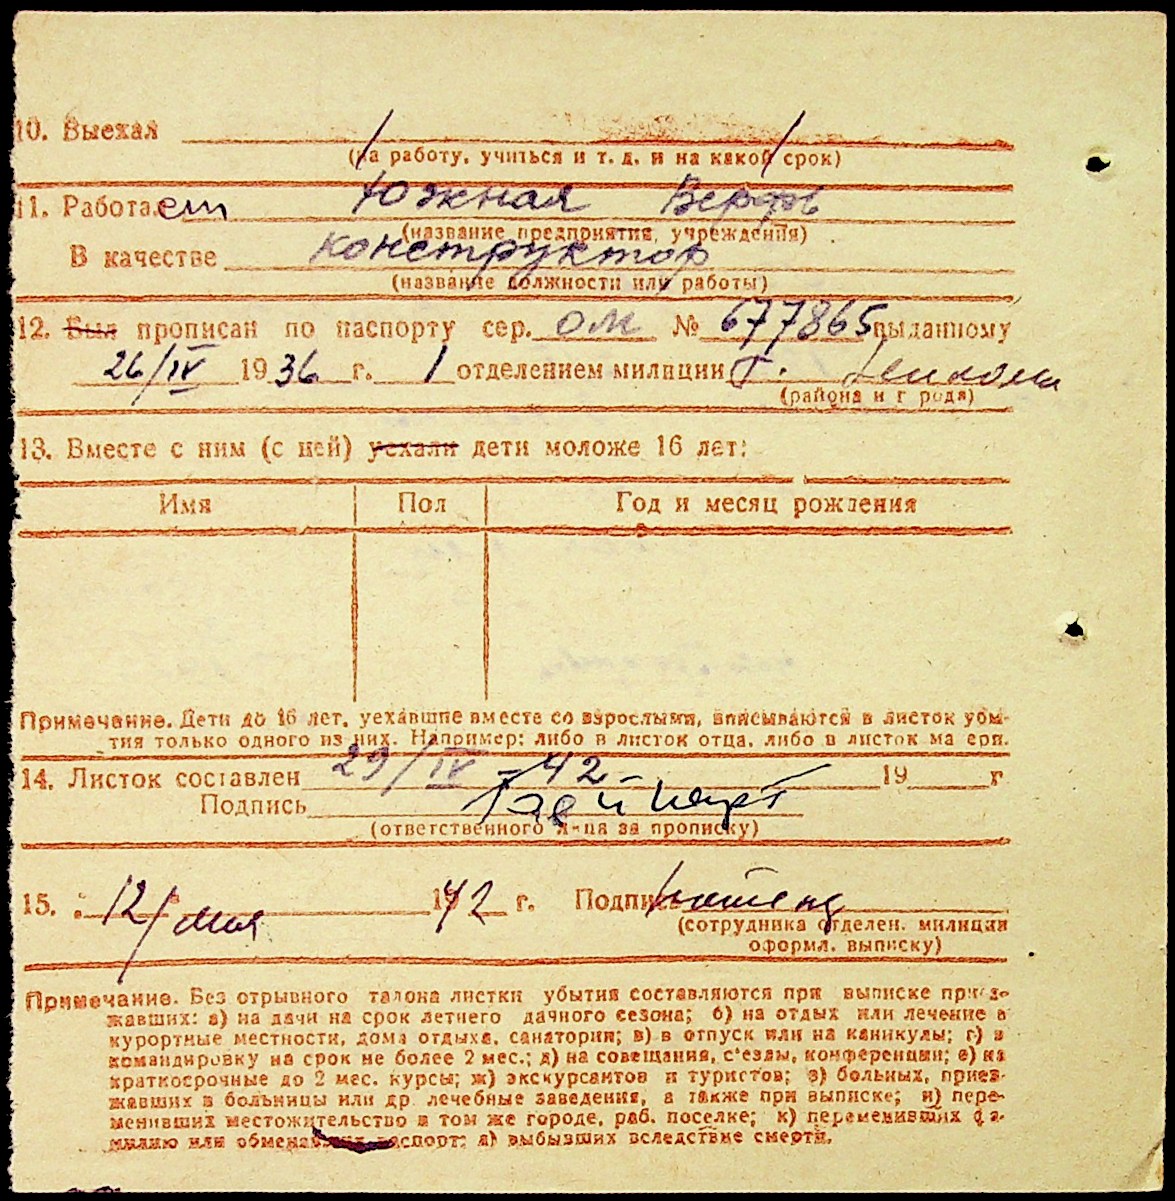 10. Выехал
(на работу, учиться и т. д. и на какой срок)
11. Работает Южная Верфь
(название предприятия, учреждения)
В качестве конструктор
(название должности или работы)
12. Был прописан по паспорту сер. ОМ № 677865 выданному
26/IV 1936 г. 1 отделением милиции г.
(района и г рода)
13. Вместе с ним (с ней) уехали дети моложе 16 лет:
Имя Пол Год и месяц рождения
Примечание. Дети до 16 лет, уехавшие вместе со взрослыми, вписываются в листок убы-
тия только одного из них. Например: либо в листок отца, либо в листок ма ери.
14. Листок составлен 29/IV - 42 - 19 г
Подпись
(ответственного лица за прописку)
15. 12/мая 1942 г. Подпись
(сотрудника отделен. милиции
оформл. выписку)
Примечание. Без отрывного талона листки убытия составляются при выписке приез-
жавших: а) на дачи на срок летнего дачного сезона; б) на отдых или лечение в
курортные местности, дома отдыха, санатории; в) в отпуск или на каникулы; г) в
командировку на срок не более 2 мес.; д) на совещания, с'езды, конференции; е) на
краткосрочные до 2 мес. курсы; ж) экскурсантов и туристов; з) больных, приез-
жавших в больницы или др. лечебные заведения, а также при выписке; и) пере-
менивших местожительство в том же городе, раб. поселке; к) переменивших фа-
милию или обменявших паспорт; л) выбывших вследствие смерти.